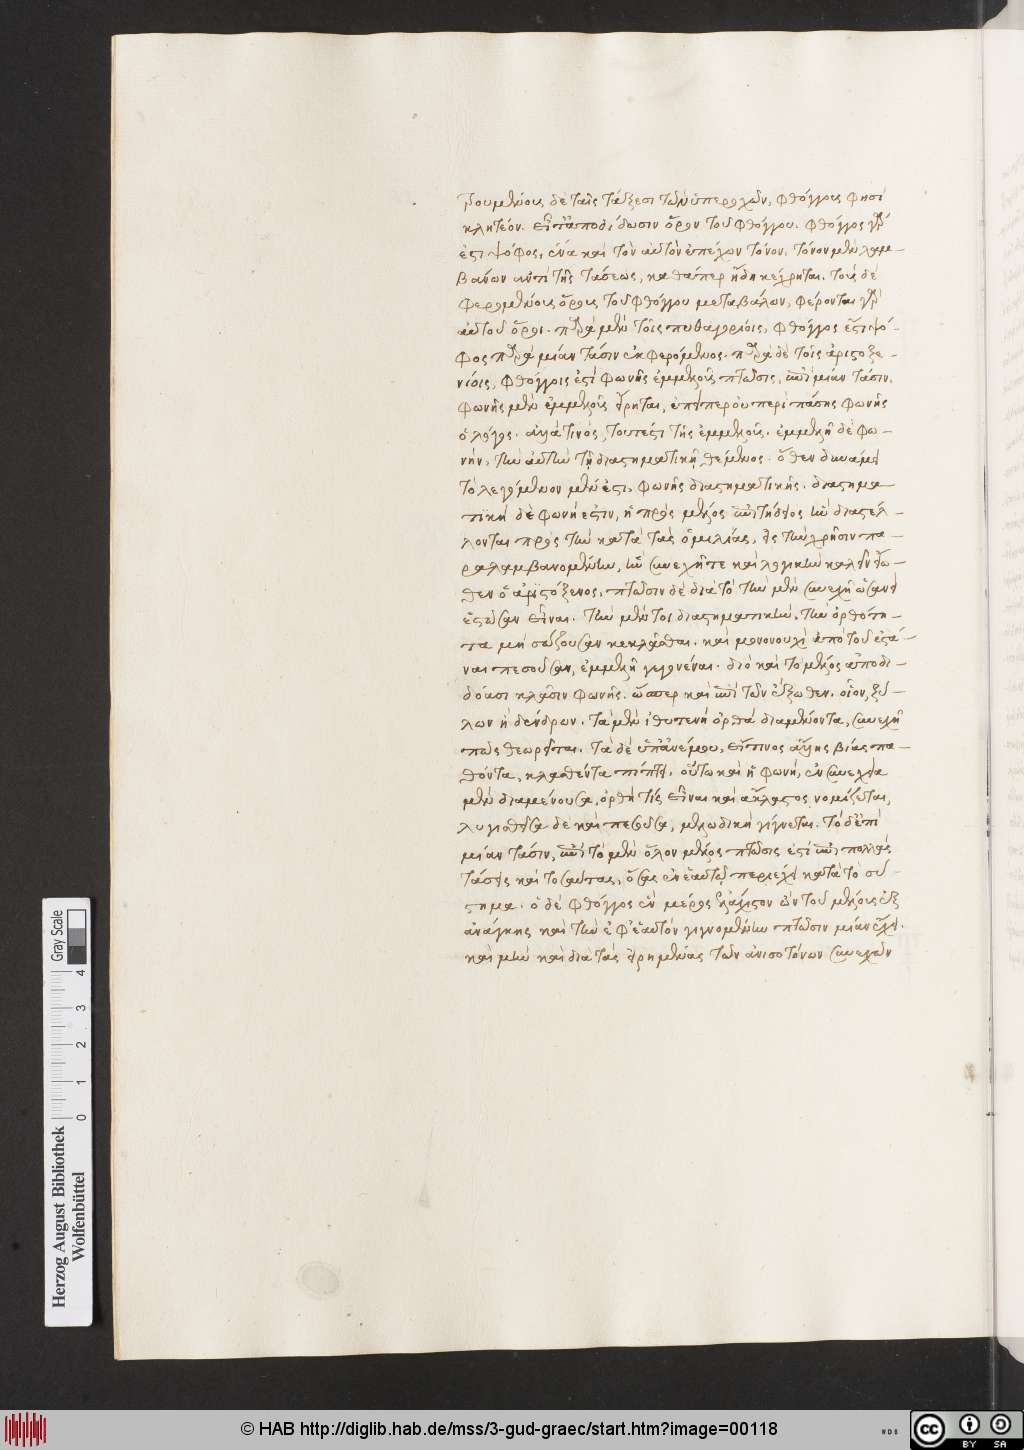 δουμένους δὲ ταῖς τάξεσι τῶν ὑπεροχῶν, φθόγγους φησὶ
κλητέον. εἶτ' ἀποδίδωσιν ὅρον τοῦ φθόγγου. φθόγγος γάρ
ἐστι ψόφος, ἕνα καὶ τὸν αὐτὸν ἐπέχων τόνον, τόνον μὲν λαμ-
βάνων ἀντὶ τῆς τάσεως, καθάπερ ἤδη κέχρηται. τοὺς δὲ
φερομένους ὅρους τοῦ φθόγγου μεταβάλων, φέρονται γὰρ
αὐτοῦ ὅροι. παρὰ μὲν τοῖς πυθαγορείοις, φθόγγος ἐστὶ ψό-
φος παρὰ μίαν τάσιν ἐκφερόμενος. παρὰ δὲ τοῖς ἀριστοξε-
νίοις, φθόγγοις ἐστὶ φωνῆς ἐμμελοῦς πτῶσις, ἐπὶ μίαν τάσιν.
φωνῆς μὲν ἐμμελοῦς εἴρηται, ἐπείπερ οὐ περὶ πάσης φωνῆς
ὁ λόγος. ἀλλά τινὸς, τουτέστι τῆς ἐμμελοῦς. ἐμμελῆ δὲ φω-
νὴν, τὴν αὐτὴν τῇ διαστηματικῇ θέμενος. ὅθεν δυνάμει
τὸ λεγόμενον μέν ἐστι, φωνῆς διαστηματικῆς. διαστημα
τικὴ δὲ φωνή ἐστιν, ἡ πρὸς μέλος ἐπιτήδειος ἣν διαστέλ-
λονται πρὸς τὴν κατὰ τὰς ὁμιλίας, εἰς τὴν χρῆσιν πα-
ραλαμβανομένην, ἣν συνεχῆ τε καὶ λογικὴν καλεῖν εἴω-
θεν ὁ ἀριστόξενος. πτῶσιν δὲ διὰ τὸ τὴν μὲν συνεχῆ ὡσανεὶ
ἑστῶσαν εἶναι. τὴν μέντοι διαστηματικὴν, τὴν ὀρθότη-
τα μὴ σώζουσαν κεκλάσθαι. καὶ μονονουχὶ ἀπὸ τοῦ ἑστά-
ναι πεσοῦσαν, ἐμμελῆ γεγονέναι. διὸ καὶ τὸ μέλος ἀποδι-
δόασι κλᾶσιν φωνῆς. ὥσπερ καὶ ἐπὶ τῶν ἔξωθεν. οἷον, ξύ-
λων ἢ δένδρων. τὰ μὲν ἰθυτενῆ ὀρθὰ διαμένοντα, συνεχῆ
πως θεωρεῖται. τὰ δὲ ὑπ' ἀνέμου, εἴ τινος ἄλλης βίας πα-
θόντα, κλασθέντα πίπτει. οὕτω καὶ ἡ φωνὴ, ἐν συνεχείᾳ
μὲν διαμένουσα, ὀρθή τίς εἶναι καὶ ἄκλαστος νομίζεται,
λυγισθεῖσα δὲ καὶ πεσοῦσα, μελωδικὴ γίγνεται. τὸ δ' ἐπὶ
μίαν τάσιν, ἐπεὶ τὸ μὲν ὅλον μέλος πτῶσίς ἐστι ἐπὶ πολλὰς
τάσεις καὶ τοσαύτας, ὅσας ἐν ἑαυτῷ περιέχει κατὰ τὸ σύ-
στημα. ὁ δὲ φθόγγος ἓν μέρος ἐλάχιστον ὢν τοῦ μέλους ἐξ
ἀνάγκης καὶ τὴν ἐφ' ἑαυτὸν γιγνομένην πτῶσιν μίαν ἔχει.
καὶ μὴν καὶ διὰ τὰς εἰρημένας τῶν ἀνισοτόνων συνεχῶν
Herzog August Bibliothek
Wolfenbüttel
0 1 2 3 4
Gray Scale
© HAB http://diglib.hab.de/mss/3-gud-graec/start.htm?image=00118
WDB
cc BY SA